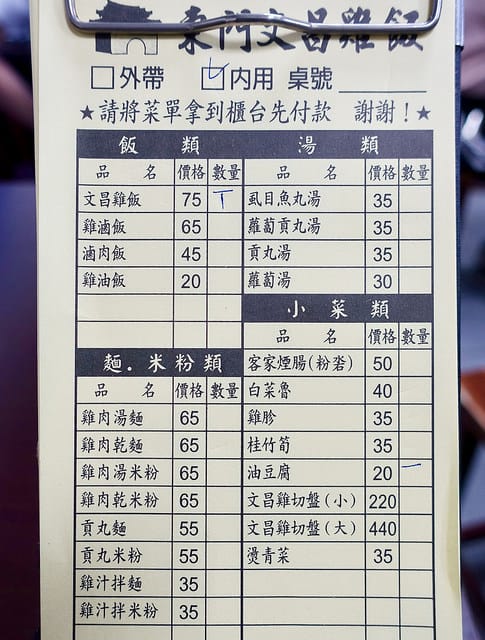 東門文昌雞飯
□外帶 ☑内用 桌號
★請將菜單拿到櫃台先付款 謝謝!★
飯 類
品 名 價格 數量
文昌雞飯 75 T
雞滷飯 65
滷肉飯 45
雞油飯 20
麵.米粉類
品 名 價格 數量
雞肉湯麵 65
雞肉乾麵 65
雞肉湯米粉 65
雞肉乾米粉 65
貢丸麵 55
貢丸米粉 55
雞汁拌麵 35
雞汁拌米粉 35
湯 類
品 名 價格 數量
虱目魚丸湯 35
蘿蔔貢丸湯 35
貢丸湯 35
蘿蔔湯 30
小 菜 類
品 名 價格 數量
客家煙腸(粉砻) 50
白菜魯 40
雞胗 35
桂竹筍 35
油豆腐 20 一
文昌雞切盤(小) 220
文昌雞切盤(大) 440
燙青菜 35